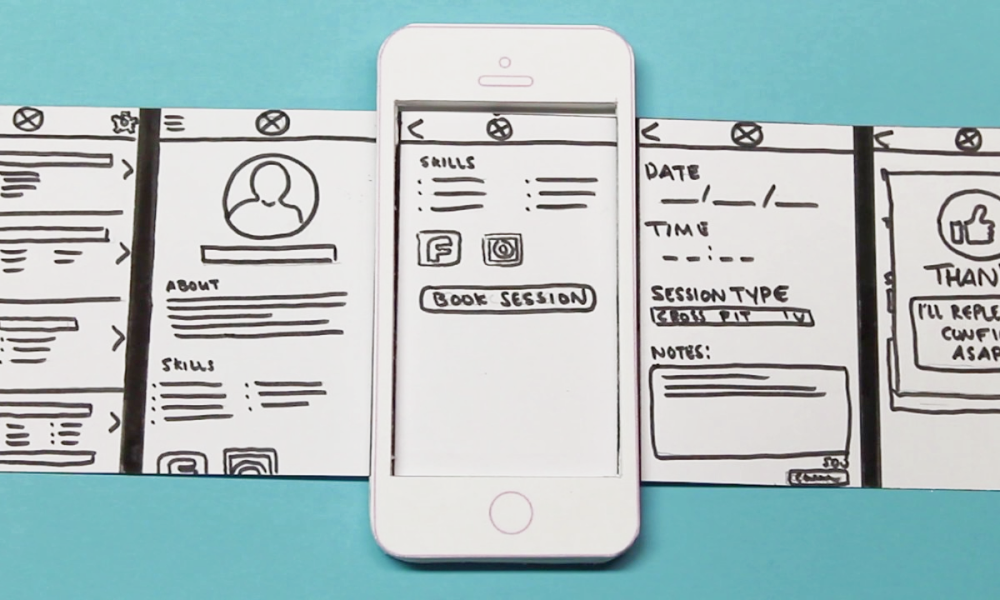 ABOUT
SKILLS
SKILLS
BOOK SESSION
DATE
TIME
SESSION TYPE
CROSS FIT
NOTES:
THAN
I'LL
CONFI
ASAP